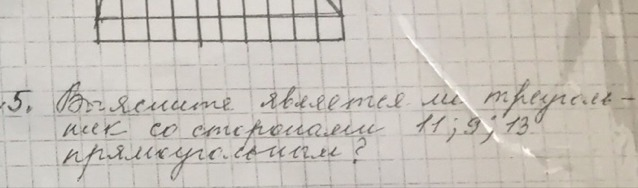 5. Выясните является ли треуголь-
ник со сторонами 11; 9; 13
прямоугольным?